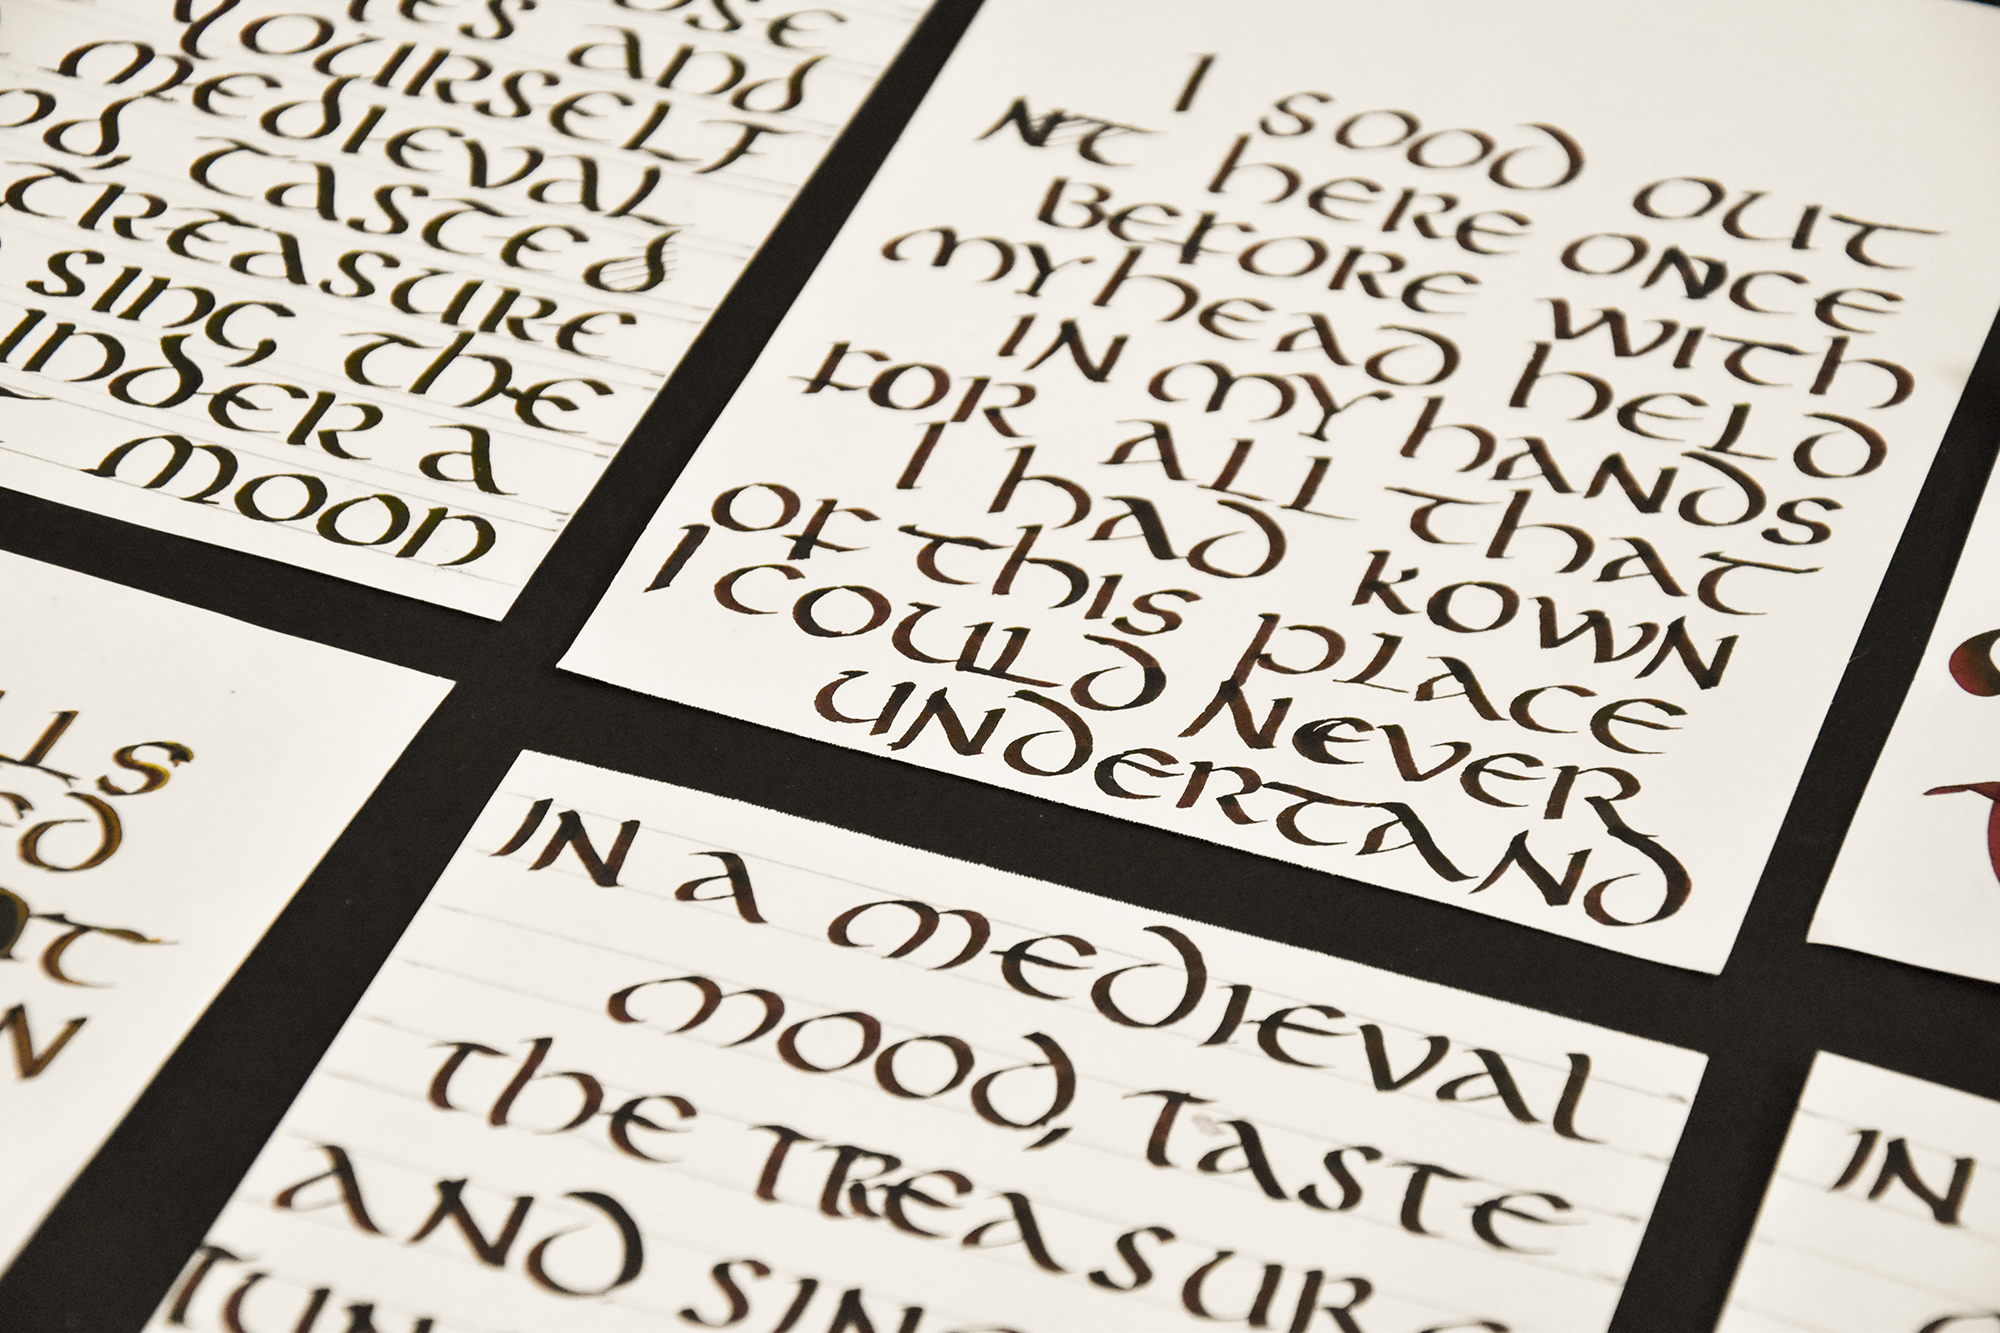 AND
YOURSELF
MEDIEVAL
TASTED
TREASURE
SING, THE
UNDER A
MOON
I SOOD OUT
NT HERE ONCE
BEFORE WITH
MY HEAD HELD
IN MY HANDS
FOR ALL THAT
I HAD KOWN
OF THIS PLACE
I COULD NEVER
UNDERTAND
IN A MEDIEVAL
MOOD, TASTE
THE TREASUR
AND SIN
IN